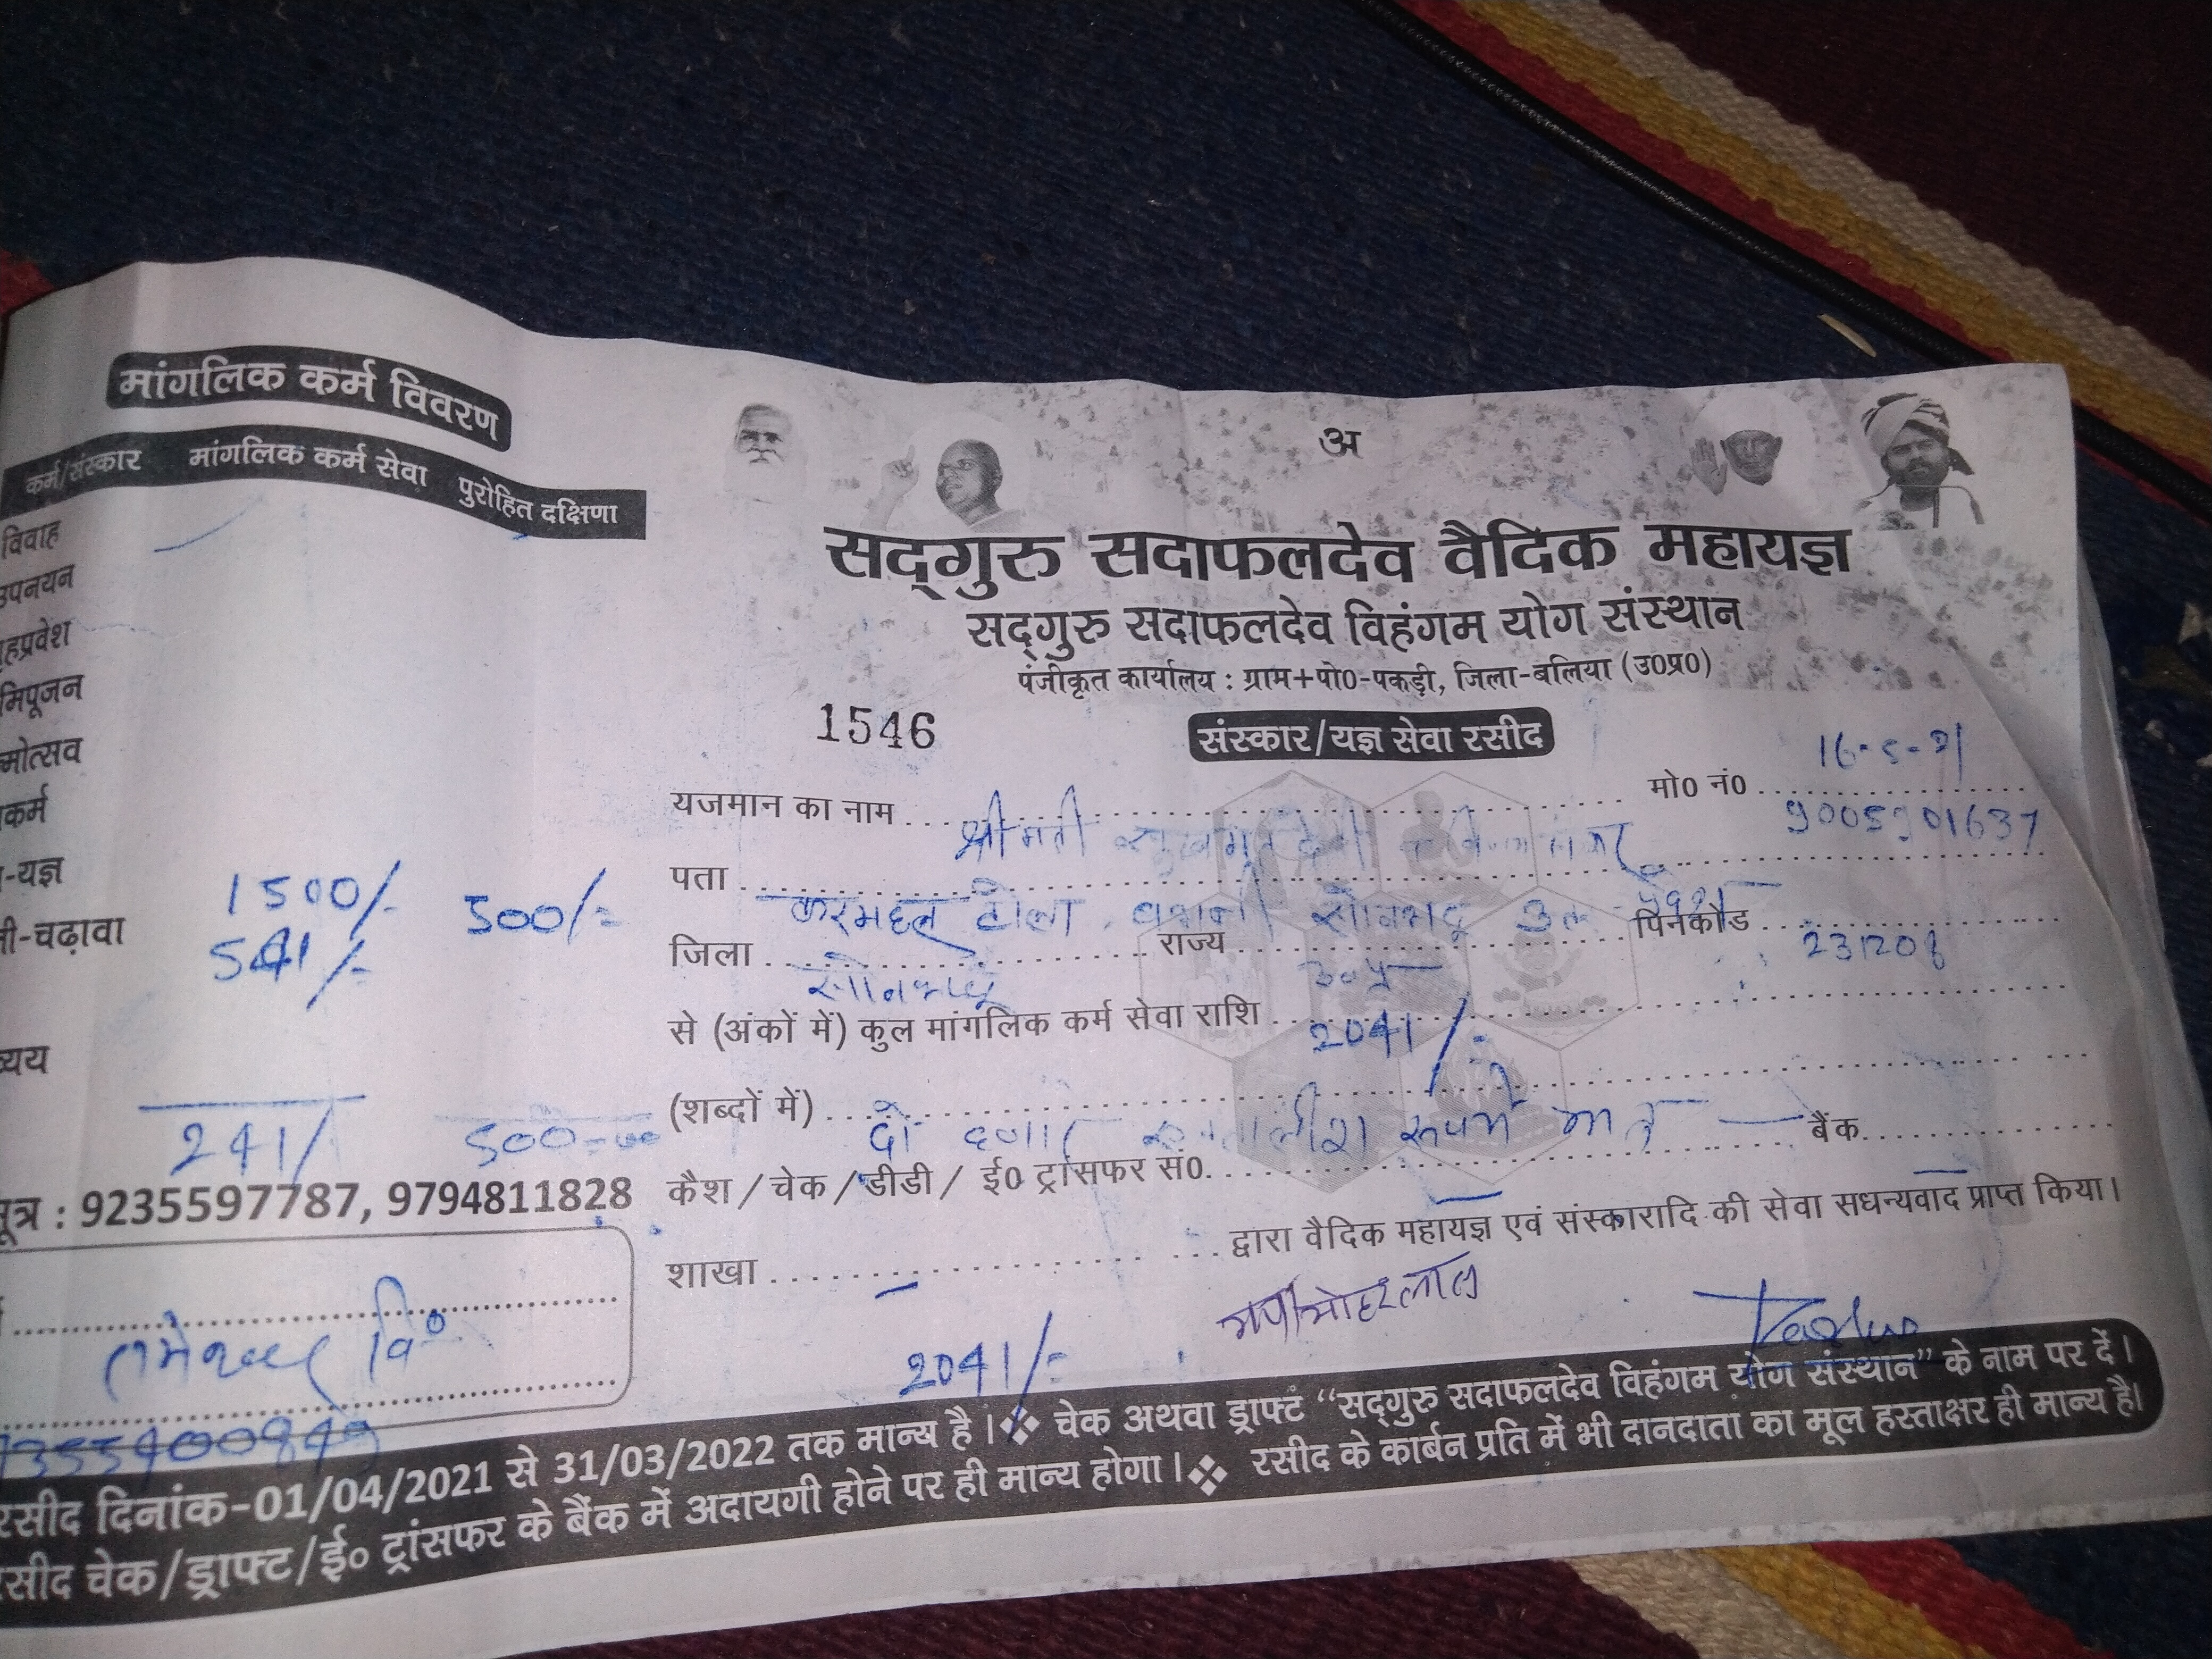 मांगलिक कर्म विवरण
कर्म/संस्कार मांगलिक कर्म सेवा पुरोहित दक्षिणा
विवाह
उपनयन
हप्रवेश
मिपूजन
मोत्सव
कर्म
-यज्ञ 1500/- 500/=
ती-चढ़ावा 541/=
व्यय
241/ 500=00
सूत्र : 9235597787, 9794811828
वि०
अ
सद्गुरु सदाफलदेव वैदिक महायज्ञ
सद्गुरु सदाफलदेव विहंगम योग संस्थान
पंजीकृत कार्यालय : ग्राम+पो0-पकड़ी, जिला-बलिया (उ0प्र0)
1546 संस्कार/यज्ञ सेवा रसीद
16-5-21
यजमान का नाम श्रीमती मो0 नं0
पता टोला सोनभद्र
जिला सोनभद्र राज्य उ०प्र पिनकोड
से (अंकों में) कुल मांगलिक कर्म सेवा राशि 2041/=
(शब्दों में) दो हजार एकतालीश रूपये मात्र
कैश / चेक / डीडी / ई0 ट्रांसफर सं0. बैंक
शाखा द्वारा वैदिक महायज्ञ एवं संस्कारादि की सेवा सधन्यवाद प्राप्त किया।
2041/=
रसीद दिनांक-01/04/2021 से 31/03/2022 तक मान्य है। ❖ चेक अथवा ड्राफ्ट “सद्गुरु सदाफलदेव विहंगम योग संस्थान” के नाम पर दें।
रसीद चेक/ड्राफ्ट/ई० ट्रांसफर के बैंक में अदायगी होने पर ही मान्य होगा। ❖ रसीद के कार्बन प्रति में भी दानदाता का मूल हस्ताक्षर ही मान्य है।